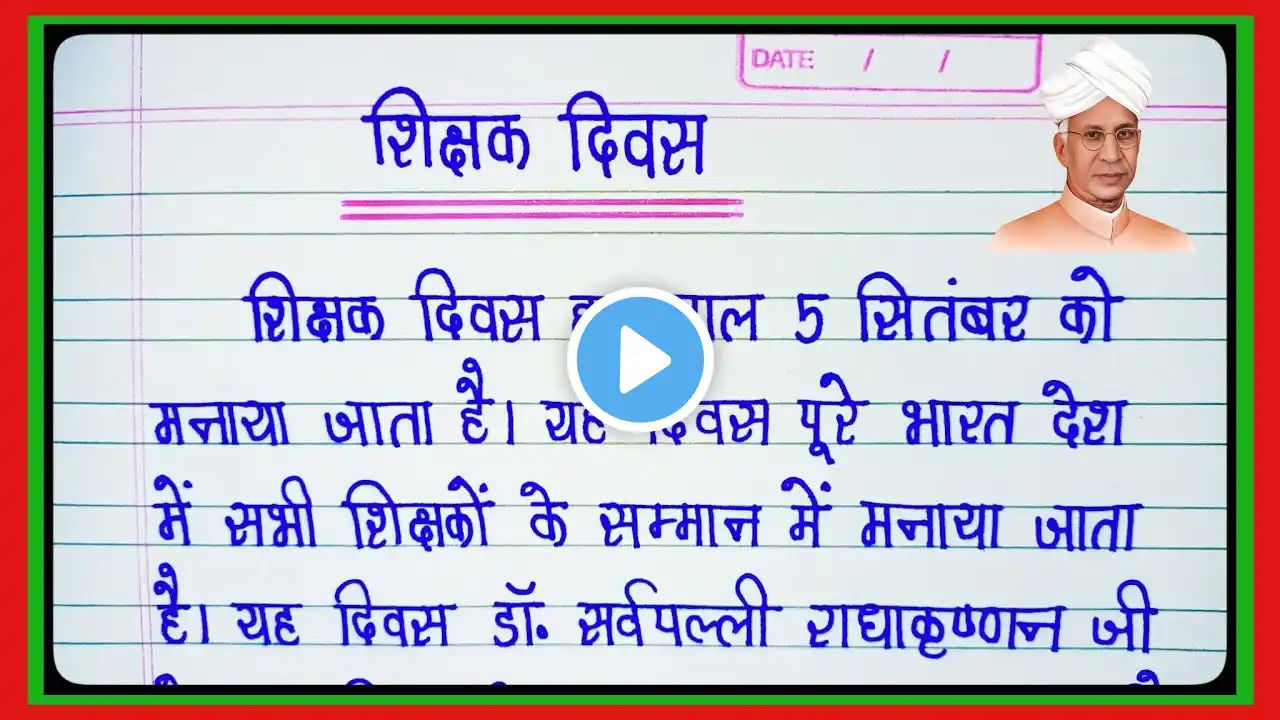 DATE / /
शिक्षक दिवस
शिक्षक दिवस 5 सितंबर को
मनाया जाता है। यह दिवस पूरे भारत देश
में सभी शिक्षकों के सम्मान में मनाया जाता
है। यह दिवस डॉ. सर्वपल्ली राधाकृष्णन जी